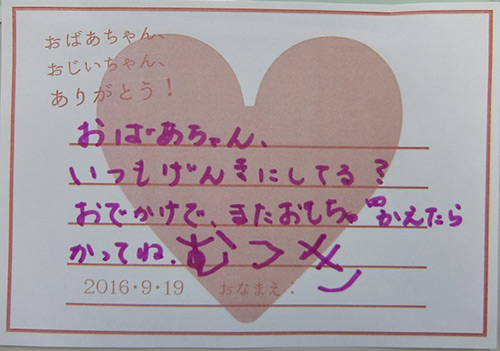 おばあちゃん、
おじいちゃん、
ありがとう！
おばあちゃん、
いつもげんきにしてる？
おでかけで、またおもちゃ かえたら
かってね、むつみ
2016・9・19 おなまえ：